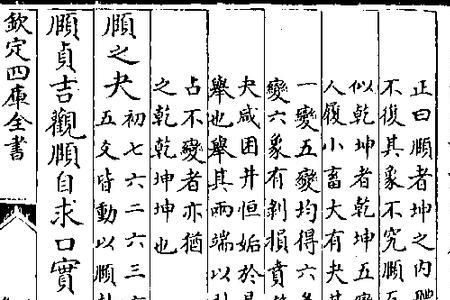 正曰頤者坤之内
不復其象不究頤
似乾坤者乾坤五變
人履小畜大有夬其
一變五變均得六
變六象有剝損賁
夬咸困井恒姤於是
舉也舉其兩端以
占不變者亦猶
之乾乾坤坤也
頤之夬
初七六二六三
五爻皆動以順
頤貞吉觀頤自求口實
欽定四庫全書